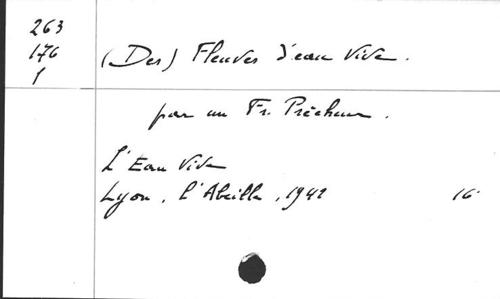 263
176
1
(Des) Fleuves d'eau vive.
par un Fr. Prêcheur.
L'Eau Vive
Lyon, l'Abeille, 1942 16°